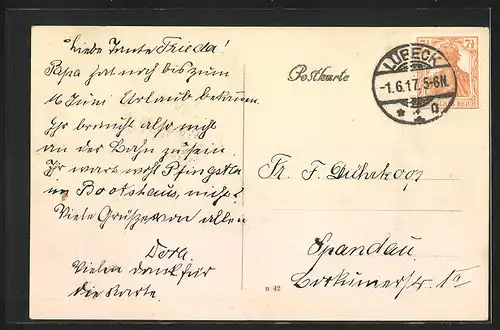 Liebe Tante Frieda!
Papa hat noch bis zum
16 Juni Urlaub bekommen.
Ihr braucht also nicht
an der Bahn zu sein.
Ihr wart wohl Pfingsten
im Bootshaus, nicht?
Viele Grüße von allen
Dora.
Vielen dank für
die Karte.
Postkarte
LÜBECK
-1.6.17. 5-6N.
* 1 *
7½ 7½
Fr. F. Dührkoop
Spandau
Borkumerstr.
n 42